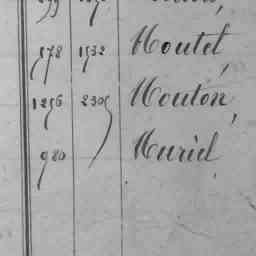 578 1532 Moutet,
1256 2305 Mouton,
920 Muriel